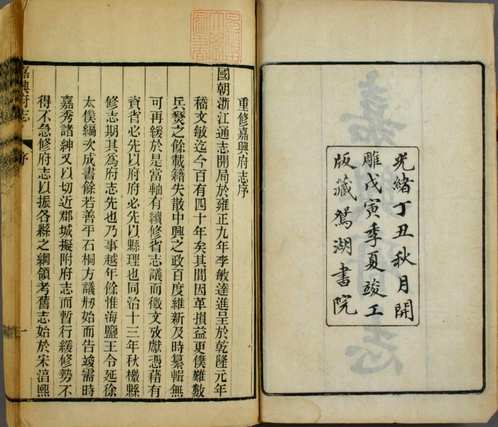 光緒丁丑秋月開
雕戊寅季夏竣工
版藏鴛湖書院
重修嘉興府志序
國朝浙江通志開局於雍正九年李敏達進呈於乾隆元年
嵇文敏迄今百有四十年矣其間因革損益更僕難數
兵燹之餘載籍失散中興之政百度維新及時纂輯無
可再緩於是當軸有續修省志議而徵文攷獻憑藉有
資省必先以府府必先以縣理也同治十三年秋檄縣
修志期其為府志先也乃事越年餘惟海鹽王令延徐
太僕次成書餘若善平石桐方議刱始而告竣需時
嘉秀諸紳又以切近郡城擬附府志而暫行緩修勢不
得不急修府志以振各縣之綱領考舊志始於宋湻熙
嘉興府志 序